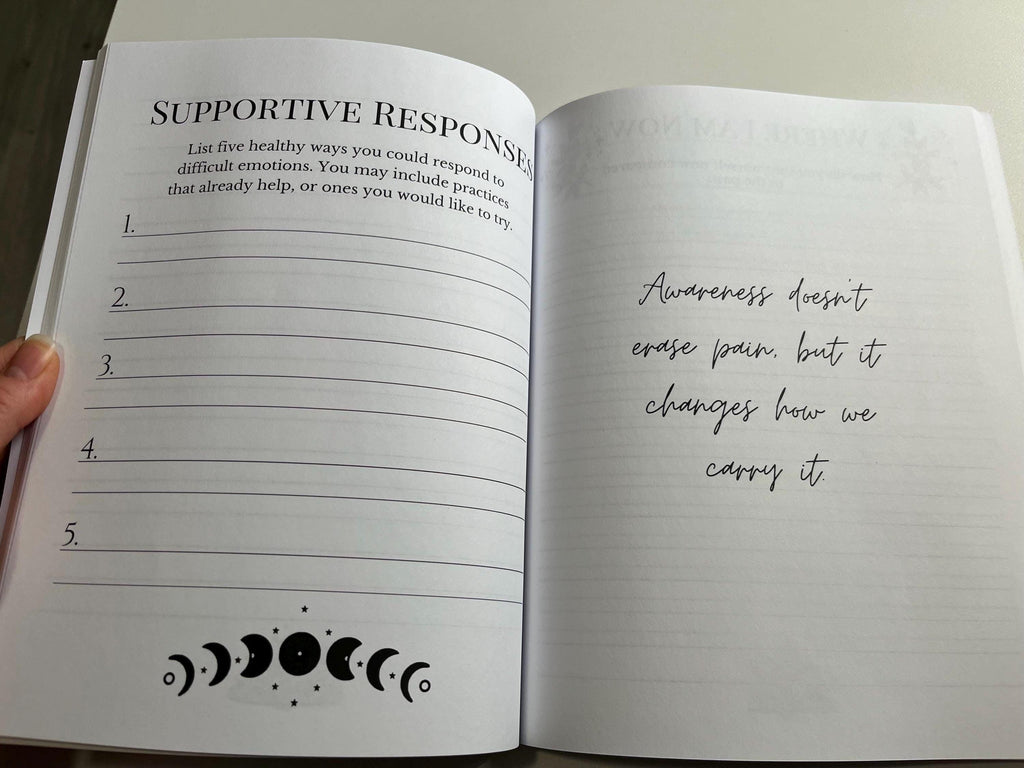 SUPPORTIVE RESPONSES
List five healthy ways you could respond to
difficult emotions. You may include practices
that already help, or ones you would like to try.
1.
2.
3.
4.
5.
Awareness doesn't
erase pain, but it
changes how we
carry it.
WHERE I AM NOW